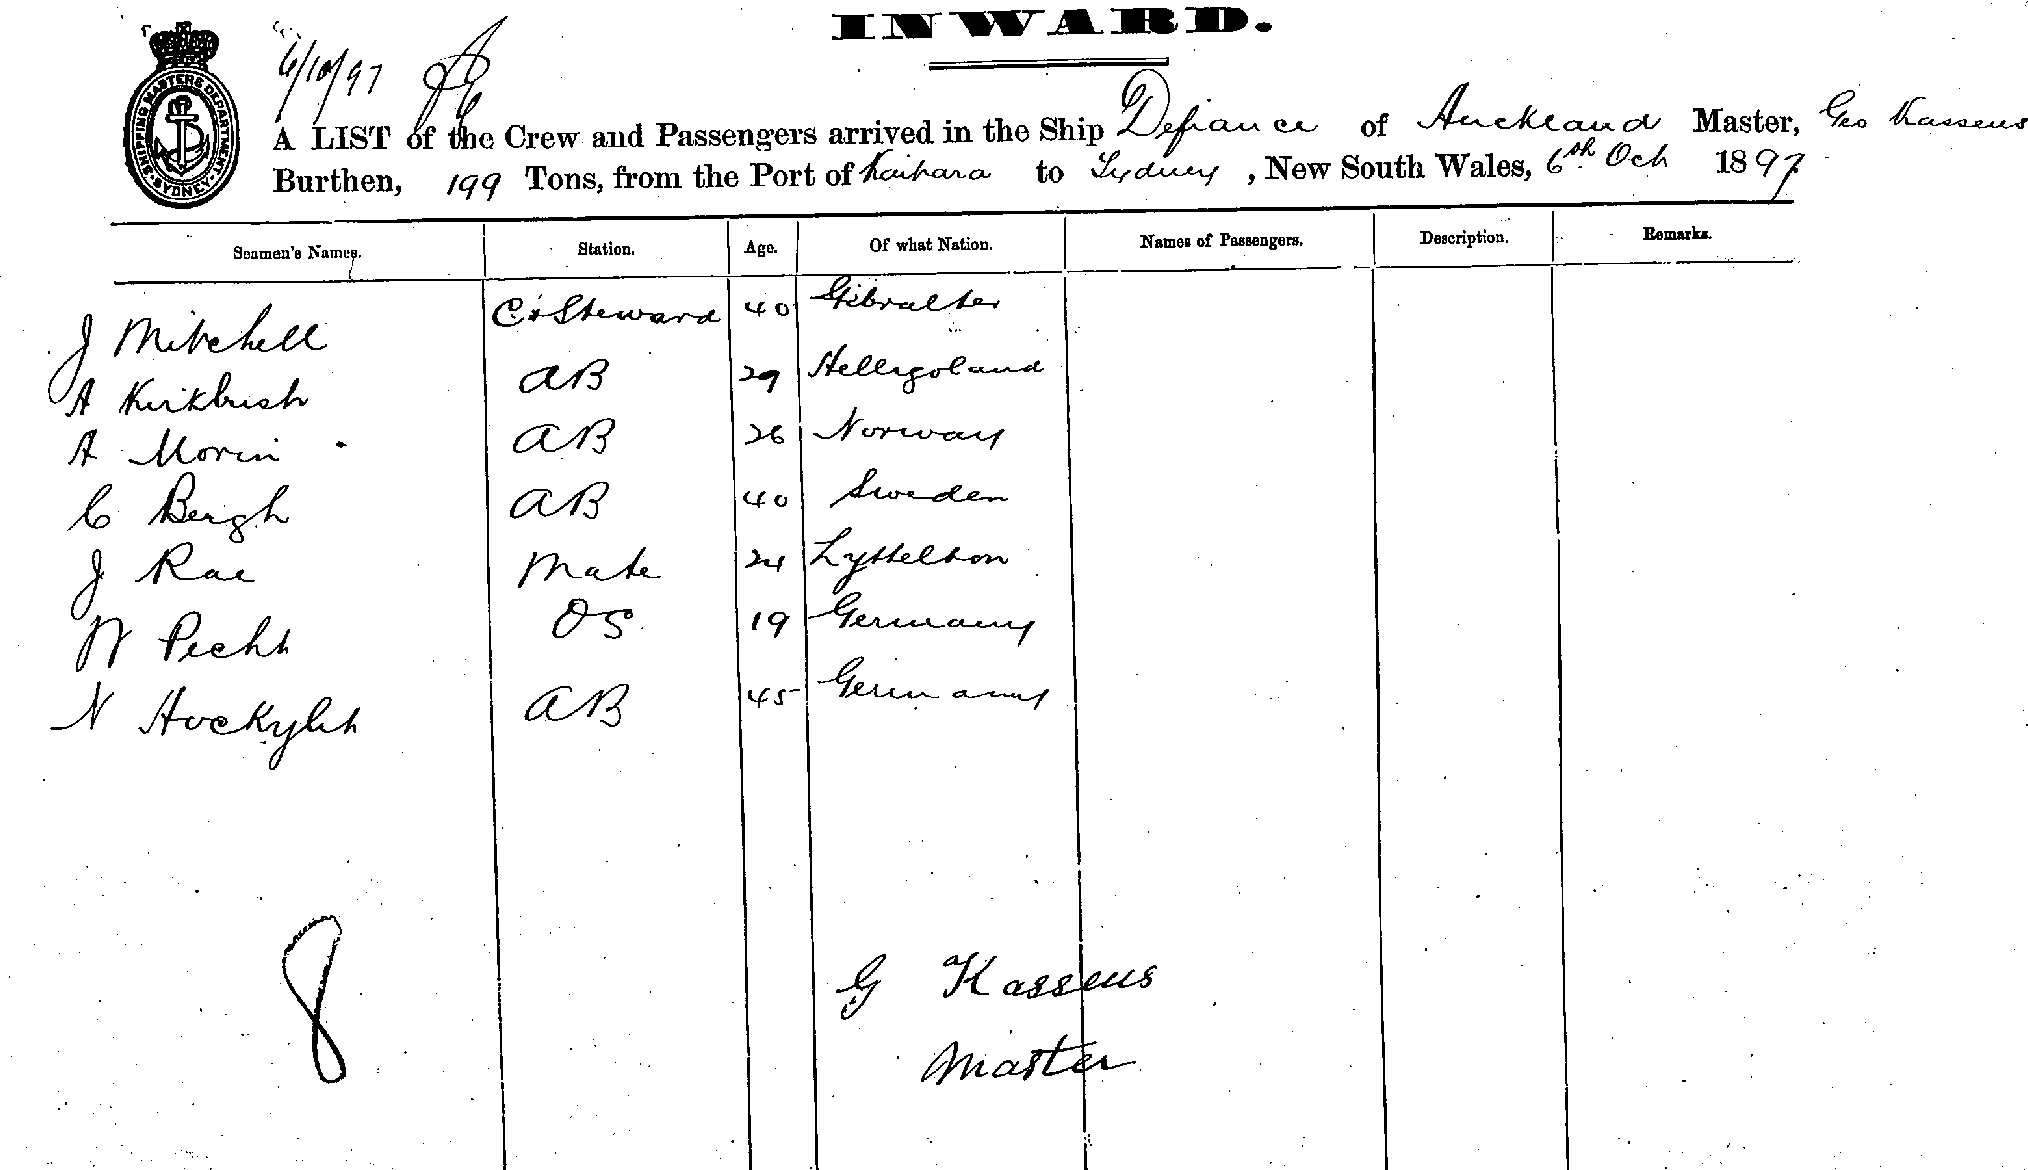 INWARD.
6/10/97
SHIPPING MASTERS DEPARTMENT SYDNEY
A LIST of the Crew and Passengers arrived in the Ship Defiance of Auckland Master, Geo Kasseus
Burthen, 199 Tons, from the Port of Kaipara to Sydney, New South Wales, 6th Oct 1897
Seamen's Names. Station. Age. Of what Nation. Names of Passengers. Description. Remarks.
J Mitchell C & Steward 40 Gibralter
A Kirkbush AB 29 Helligoland
A Morin AB 26 Norway
C Bergh AB 40 Sweden
J Rae Mate 24 Lyttelton
W Pecht OS 19 Germany
N AB 45 Germany
8
G Kasseus
Master